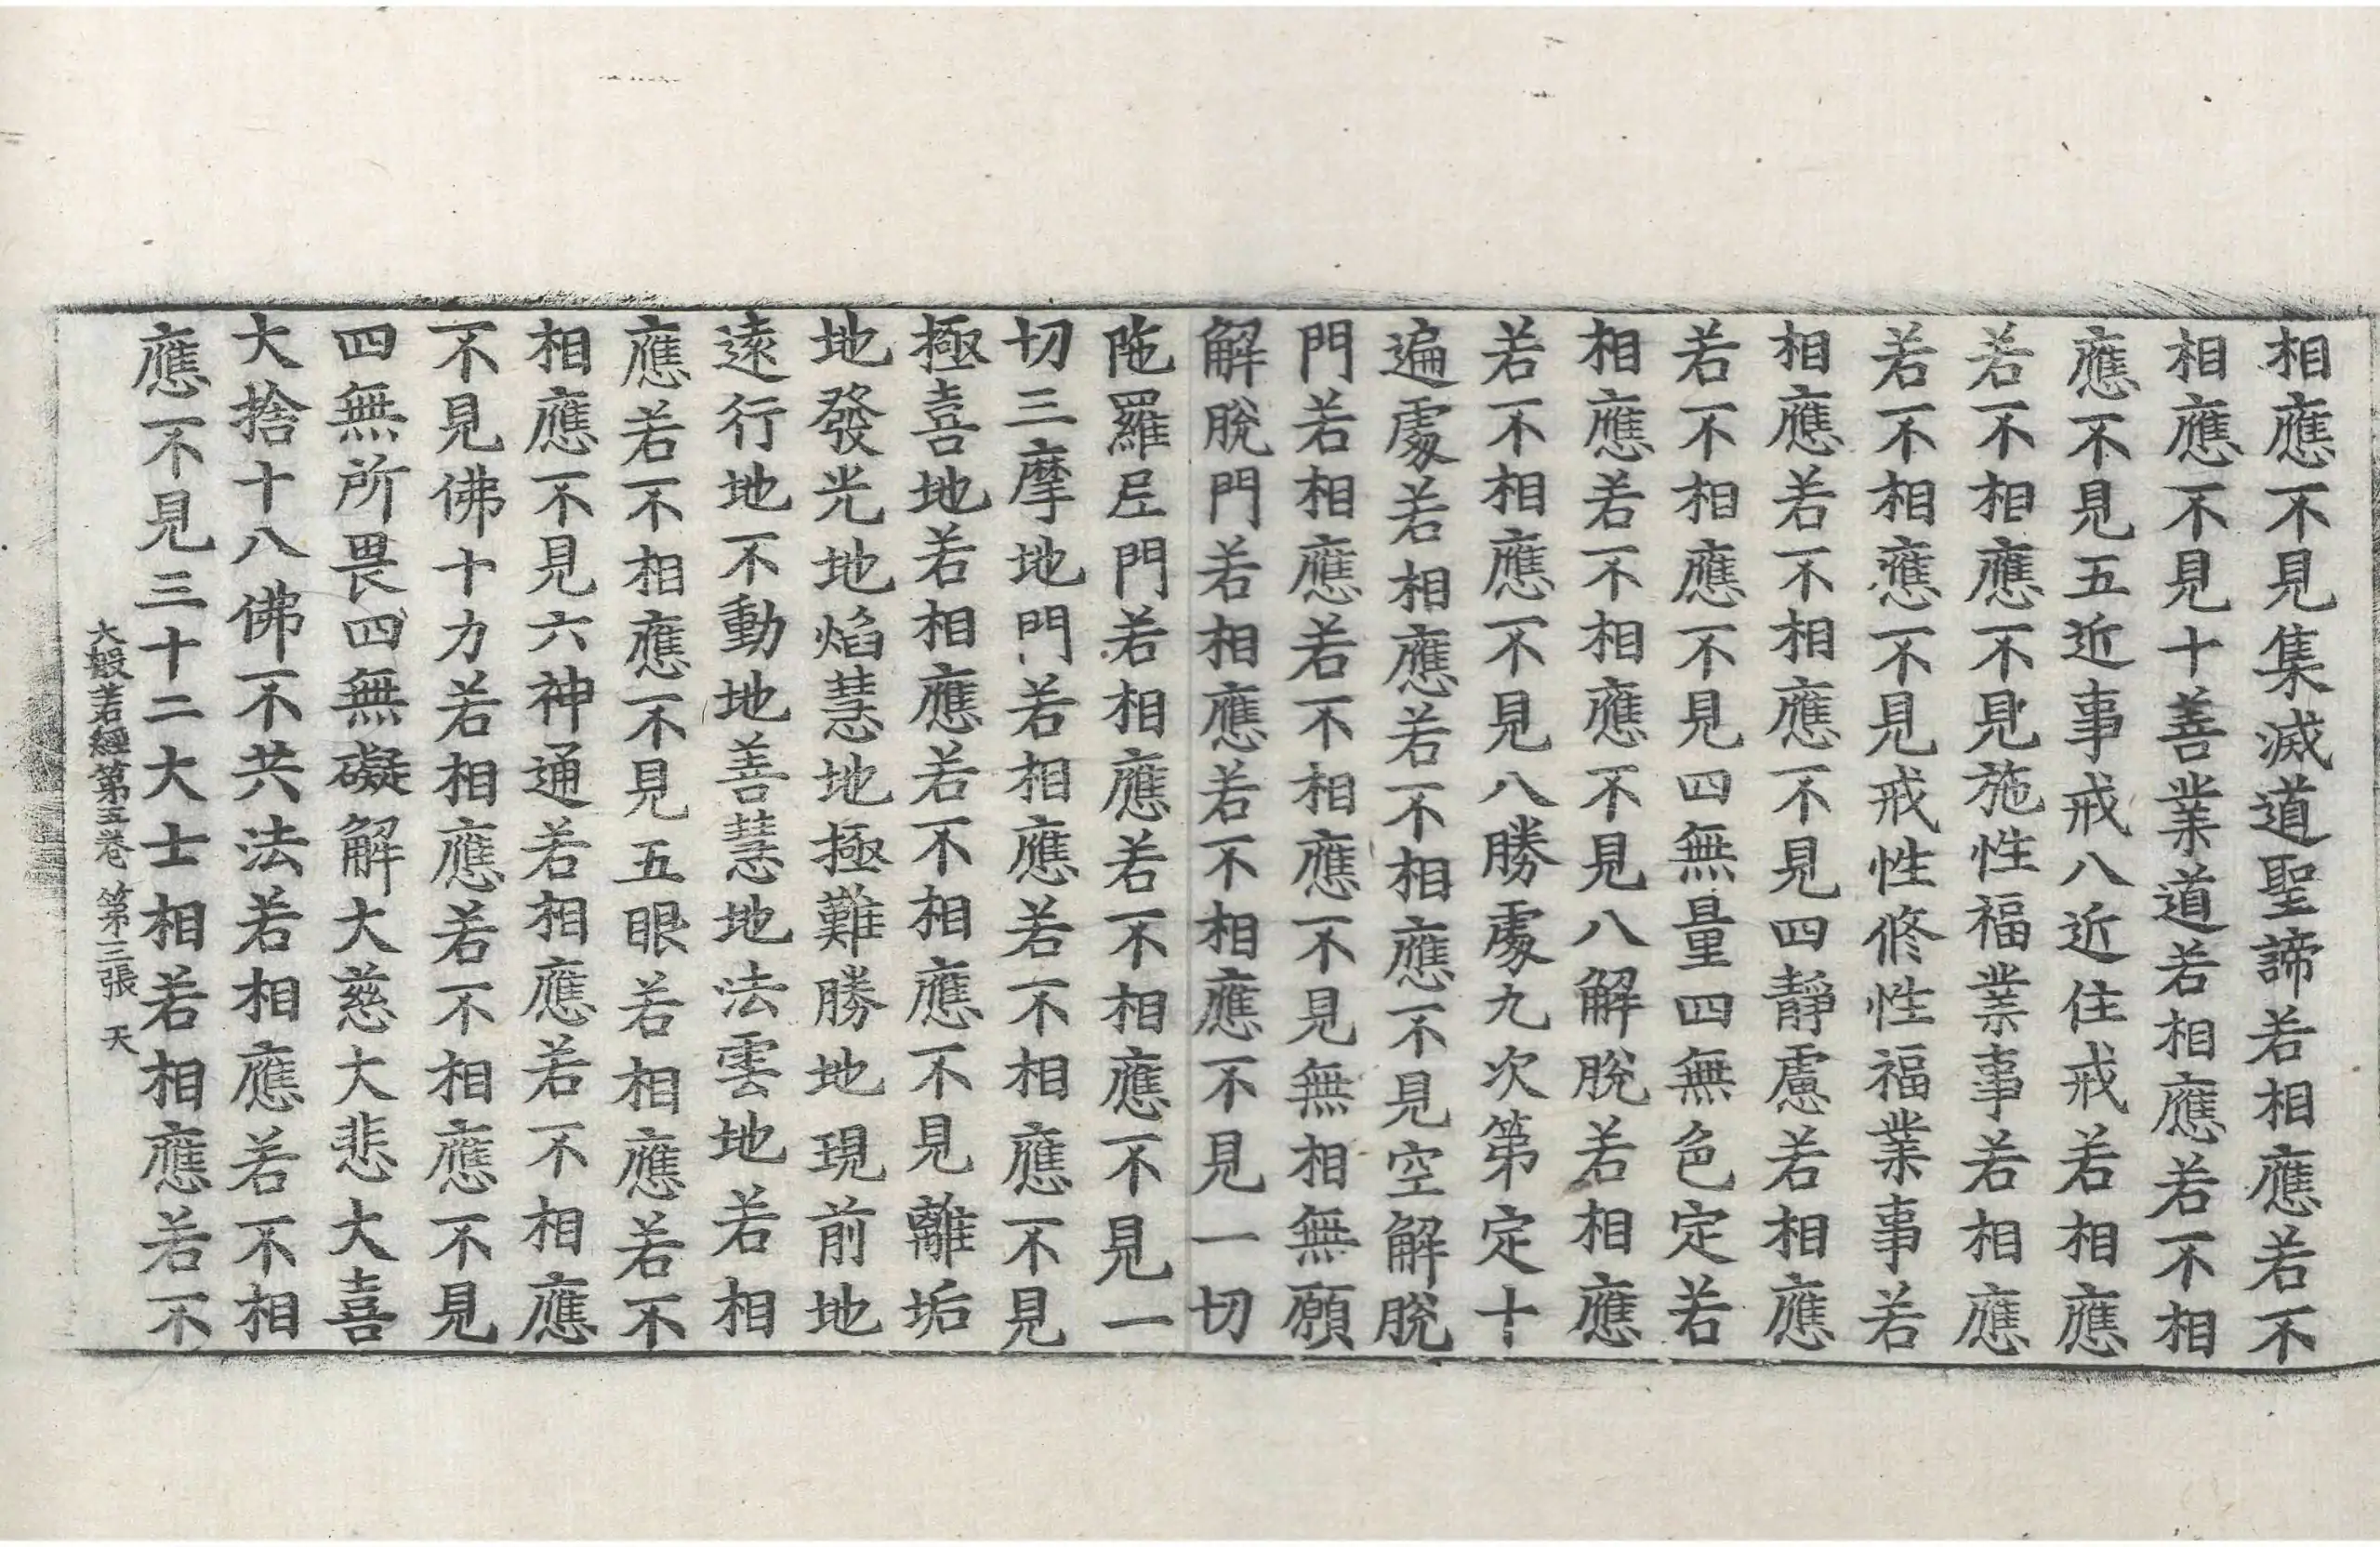 相應不見集滅道聖諦若相應若不
相應不見十善業道若相應若不相
應不見五近事戒八近住戒若相應
若不相應不見施性福業事若相應
若不相應不見戒性修性福業事若
相應若不相應不見四靜慮若相應
若不相應不見四無量四無色定若
相應若不相應不見八解脫若相應
若不相應不見八勝處九次第定十
遍處若相應若不相應不見空解脫
門若相應若不相應不見無相無願
解脫門若相應若不相應不見一切
陁羅尼門若相應若不相應不見一
切三摩地門若相應若不相應不見
極喜地若相應若不相應不見離垢
地發光地焰慧地極難勝地現前地
遠行地不動地善慧地法雲地若相
應若不相應不見五眼若相應若不
相應不見六神通若相應若不相應
不見佛十力若相應若不相應不見
四無所畏四無礙解大慈大悲大喜
大捨十八佛不共法若相應若不相
應不見三十二大士相若相應若不
大般若經第五卷 第三張 天